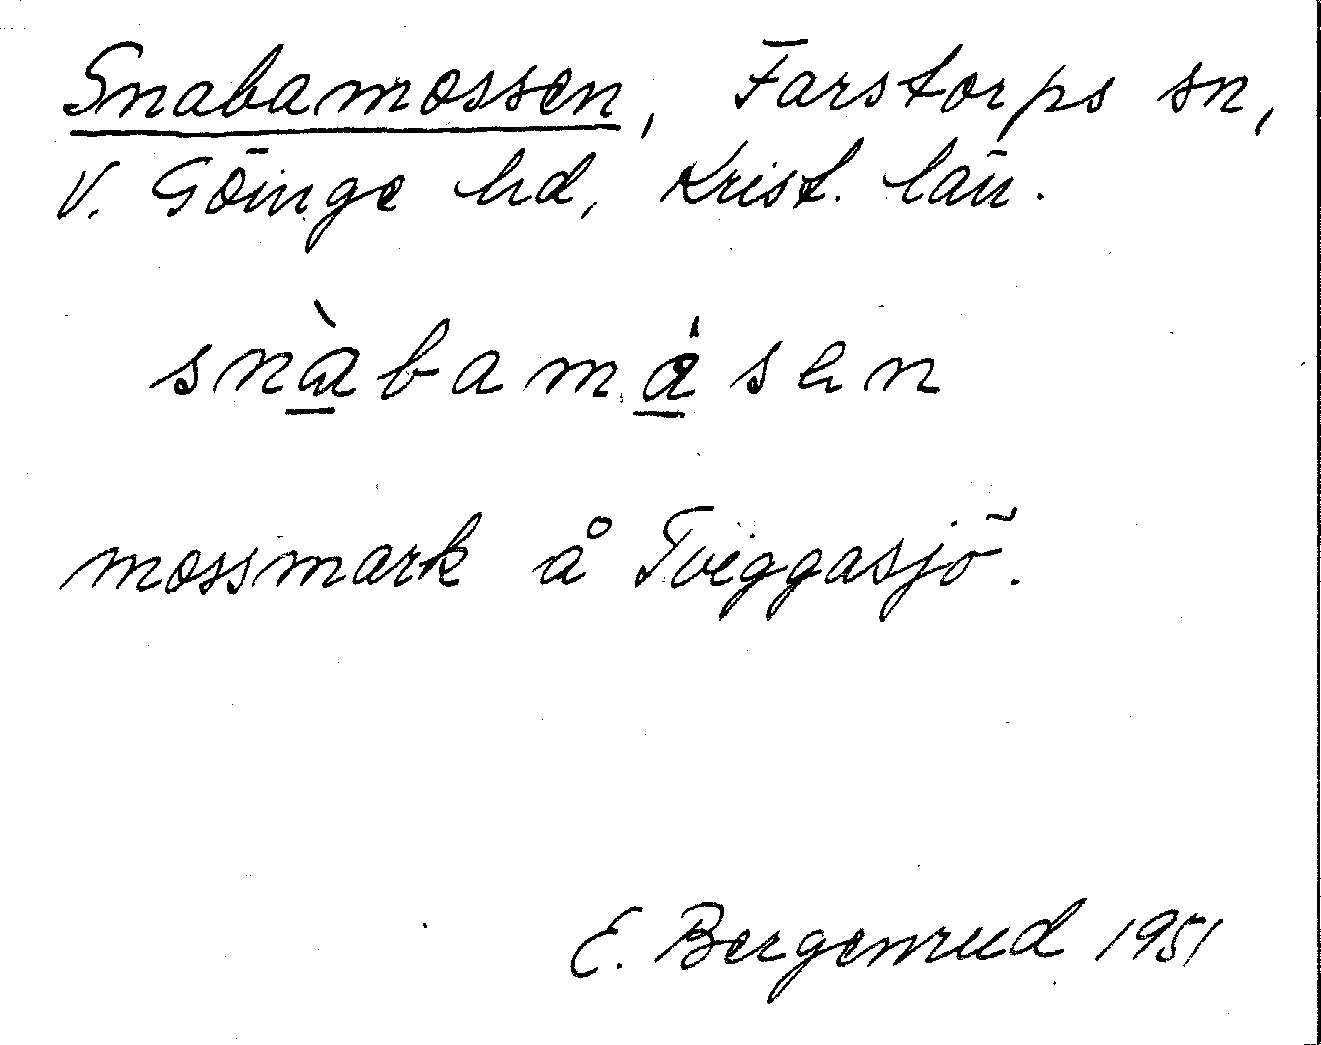 Snabamossen, Farstorps sn,
V. Göinge hd, Krist. län.
snàbamåsen
mossmark å Tviggasjö.
E. Bergenrud 1951